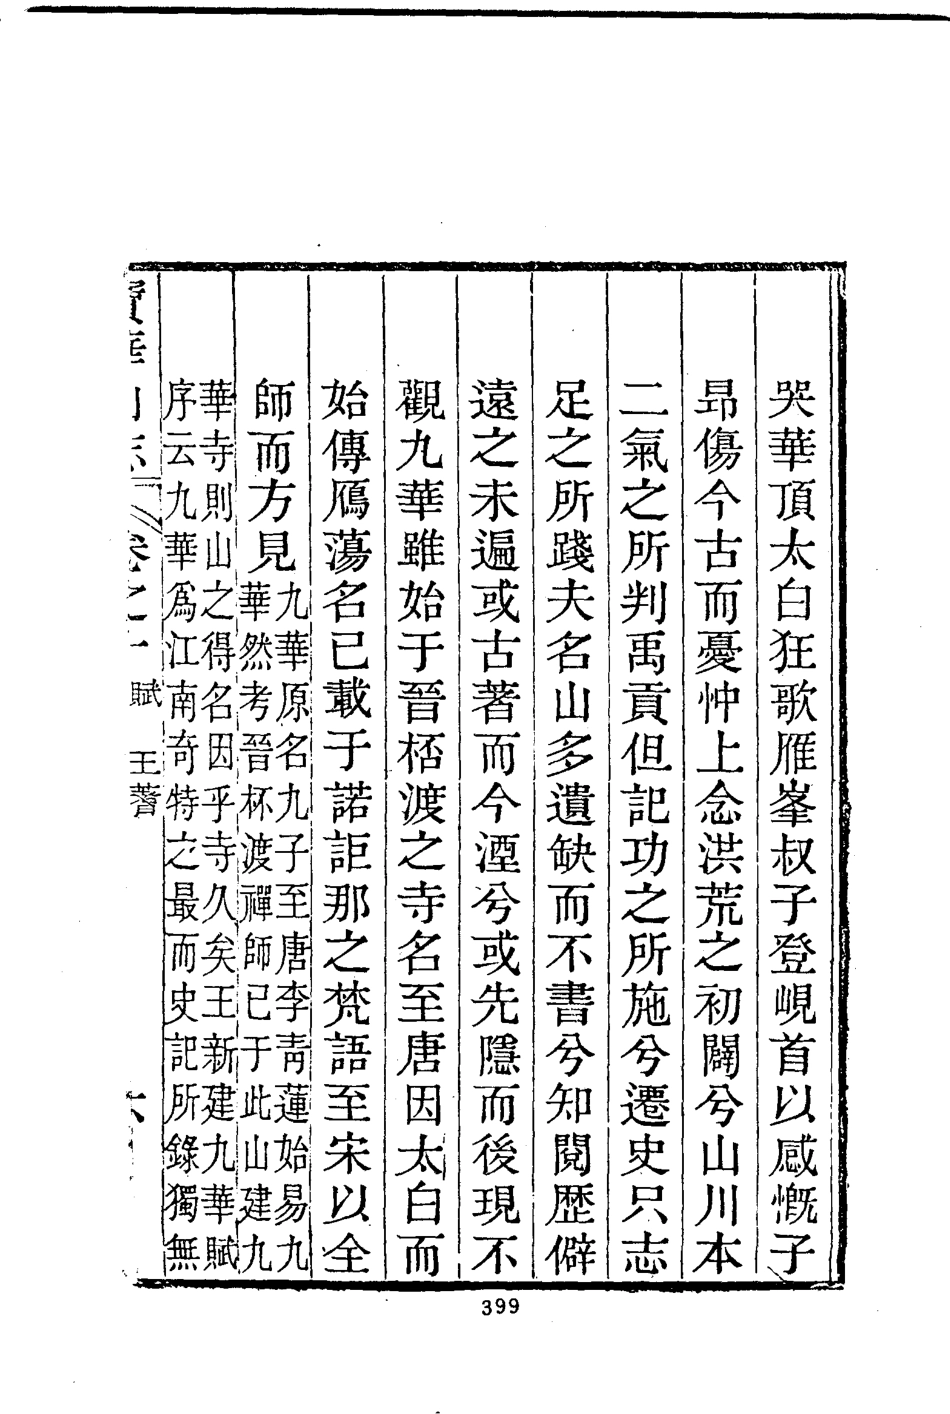 哭華頂太白狂歌雁峯叔子登峴首以感慨子
昻傷今古而憂忡上念洪荒之初闢兮山川本
二氣之所判禹貢但記功之所施兮遷史只志
足之所踐夫名山多遺缺而不書兮知閱歷僻
遠之未遍或古著而今湮兮或先隱而後現不
觀九華雖始于晉桮渡之寺名至唐因太白而
始傳鴈蕩名已載于諾詎那之梵語至宋以全
師而方見
九華原名九子至唐李靑蓮始易九
華然考晉杯渡禪師已于此山建九
華寺則山之得名因乎寺久矣王新建九華賦
序云九華爲江南奇特之最而史記所錄獨無
寶華山志
卷之十 賦 王著 六
399